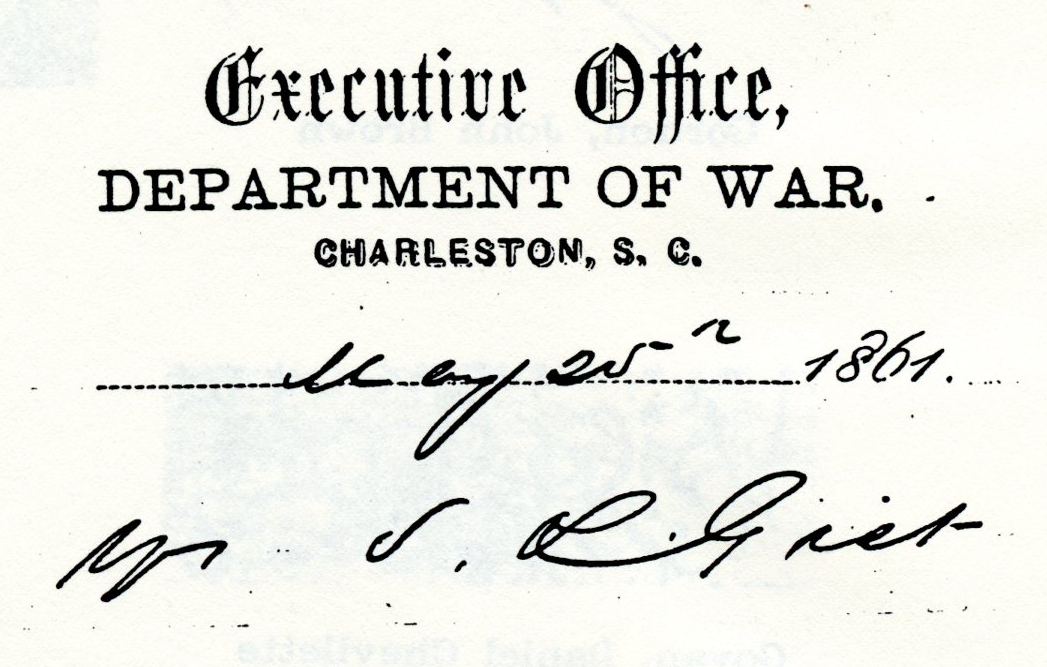 Executive Office,
DEPARTMENT OF WAR.
CHARLESTON, S. C.
May 25 1861.
S. R. Gist